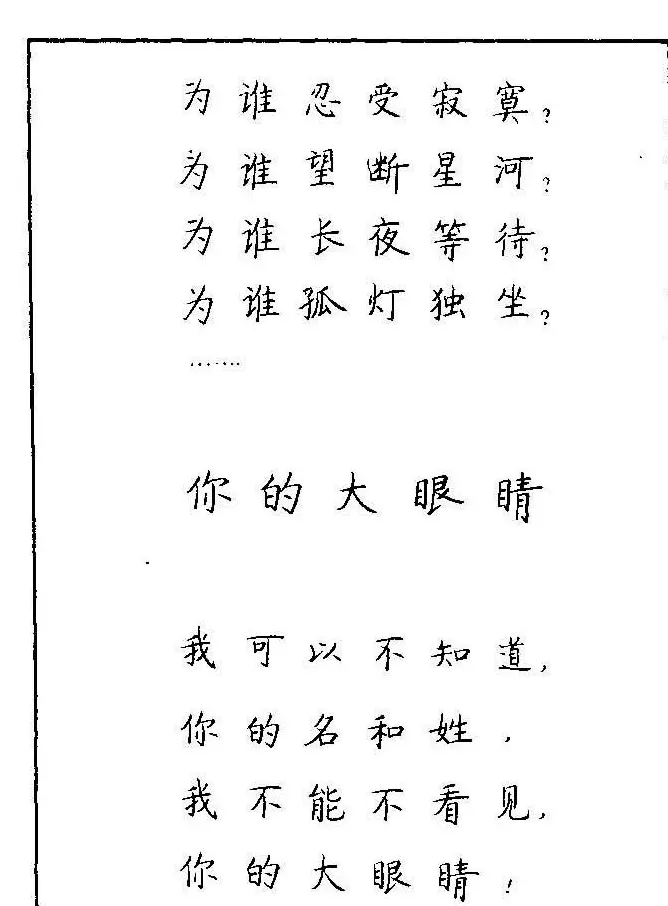 为谁忍受寂寞?
为谁望断星河?
为谁长夜等待?
为谁孤灯独坐?
……..
你的大眼睛
我可以不知道,
你的名和姓,
我不能不看见,
你的大眼睛!